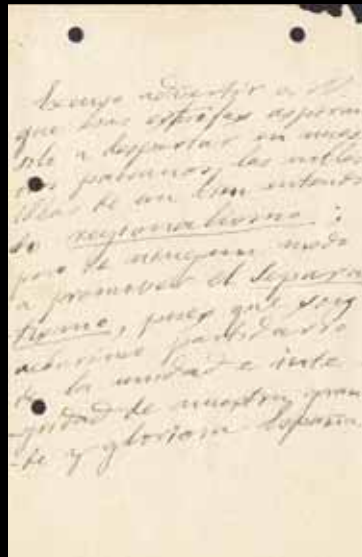 tengo advertir a V.
que esas estrofas aspiran
sólo a despertar en nues
tros paisanos, las nobles
ideas de un bien entendi
do regionalismo;
pero de ningun modo
a promover el separa
tismo, pues que soy
acérrimo partidario
de la unidad e inte
-gridad de nuestra gran
-de y gloriosa España